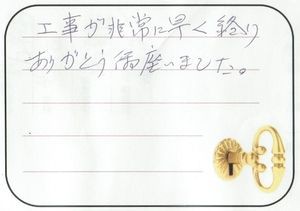 工事が非常に早く終り
ありがとう御座いました。